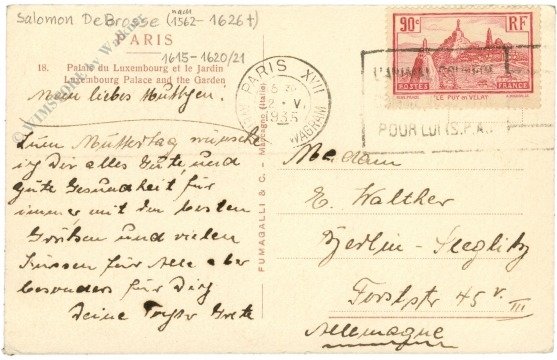 Salomon DeBrosse (nach 1562-1626†)
PARIS
1615-1620/21
18. Palais du Luxembourg et le Jardin
Luxembourg Palace and the Garden
Mein liebes Muttgen!
Zum Muttertag wünsche
ich Dir alles Gute und
gute Gesundheit für
immer mit den besten
Grüßen und vielen
Küssen für Alle aber
besonders für Dich
Deine Grete
FUMAGALLI & C.
PARIS XVII
2 V
1935
WAGRAM
90c RF
POSTES FRANCE
LE PUY EN VELAY
POUR LUI (S.P.A.)
Madam
E. Walther
Berlin-Steglitz
Forststr 45 v. III
Allemagne